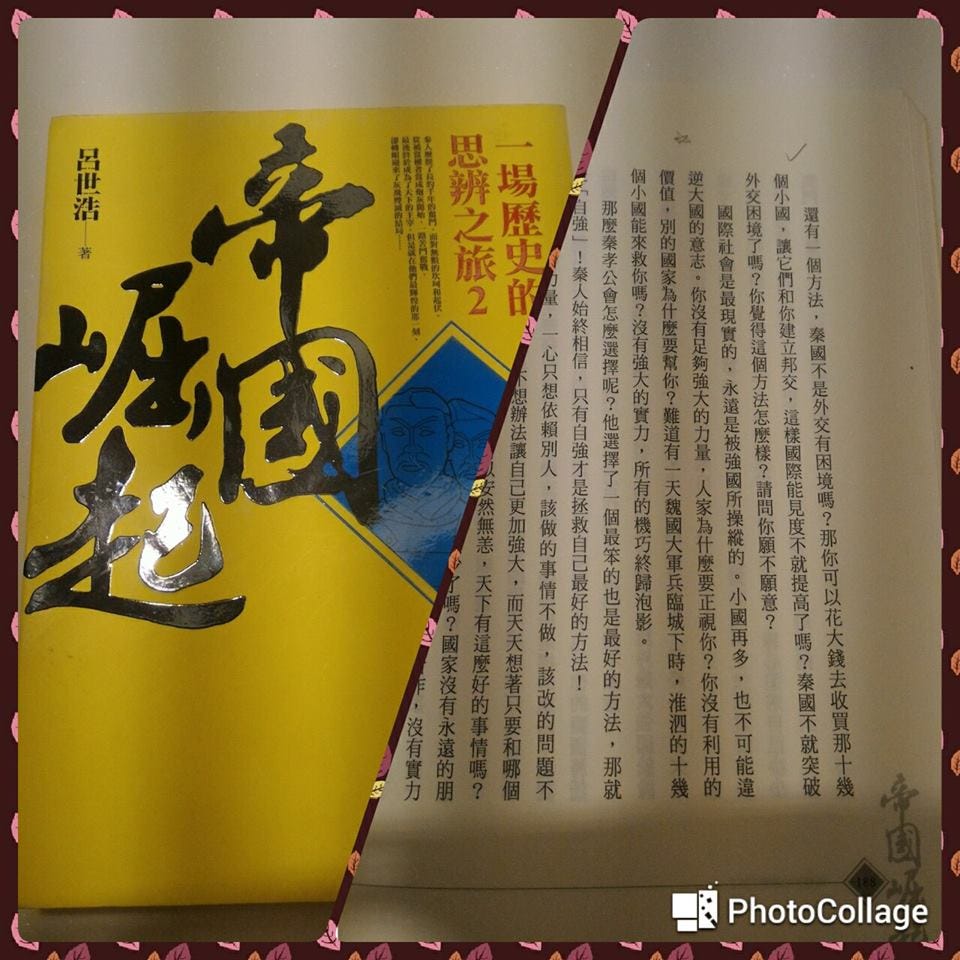 一場歷史的
思辨之旅2
最後終於成為了天下的主宰，但是就在他們最輝煌的那一刻，
卻轉眼迎來了灰飛煙滅的結局——
帝國
崛起
呂世浩 著
還有一個方法，秦國不是外交有困境嗎？那你可以花大錢去收買那十幾
個小國，讓它們和你建立邦交，這樣國際能見度不就提高了嗎？秦國不就突破
外交困境了嗎？你覺得這個方法怎麼樣？請問你願不願意？
國際社會是最現實的，永遠是被強國所操縱的。小國再多，也不可能違
逆大國的意志。你沒有足夠強大的力量，人家為什麼要正視你？你沒有利用的
價值，別的國家為什麼要幫你？難道有一天魏國大軍兵臨城下時，淮泗的十幾
個小國能來救你嗎？沒有強大的實力，所有的機巧終歸泡影。
那麼秦孝公會怎麼選擇呢？他選擇了一個最笨的也是最好的方法，那就
「自強」！秦人始終相信，只有自強才是拯救自己最好的方法！
力量，一心只想依賴別人，該做的事情不做，該改的問題不
不想辦法讓自己更加強大，而天天想著只要和哪個
以安然無恙，天下有這麼好的事情嗎？
了嗎？國家沒有永遠的朋
作，沒有實力
帝國崛
188
PhotoCollage